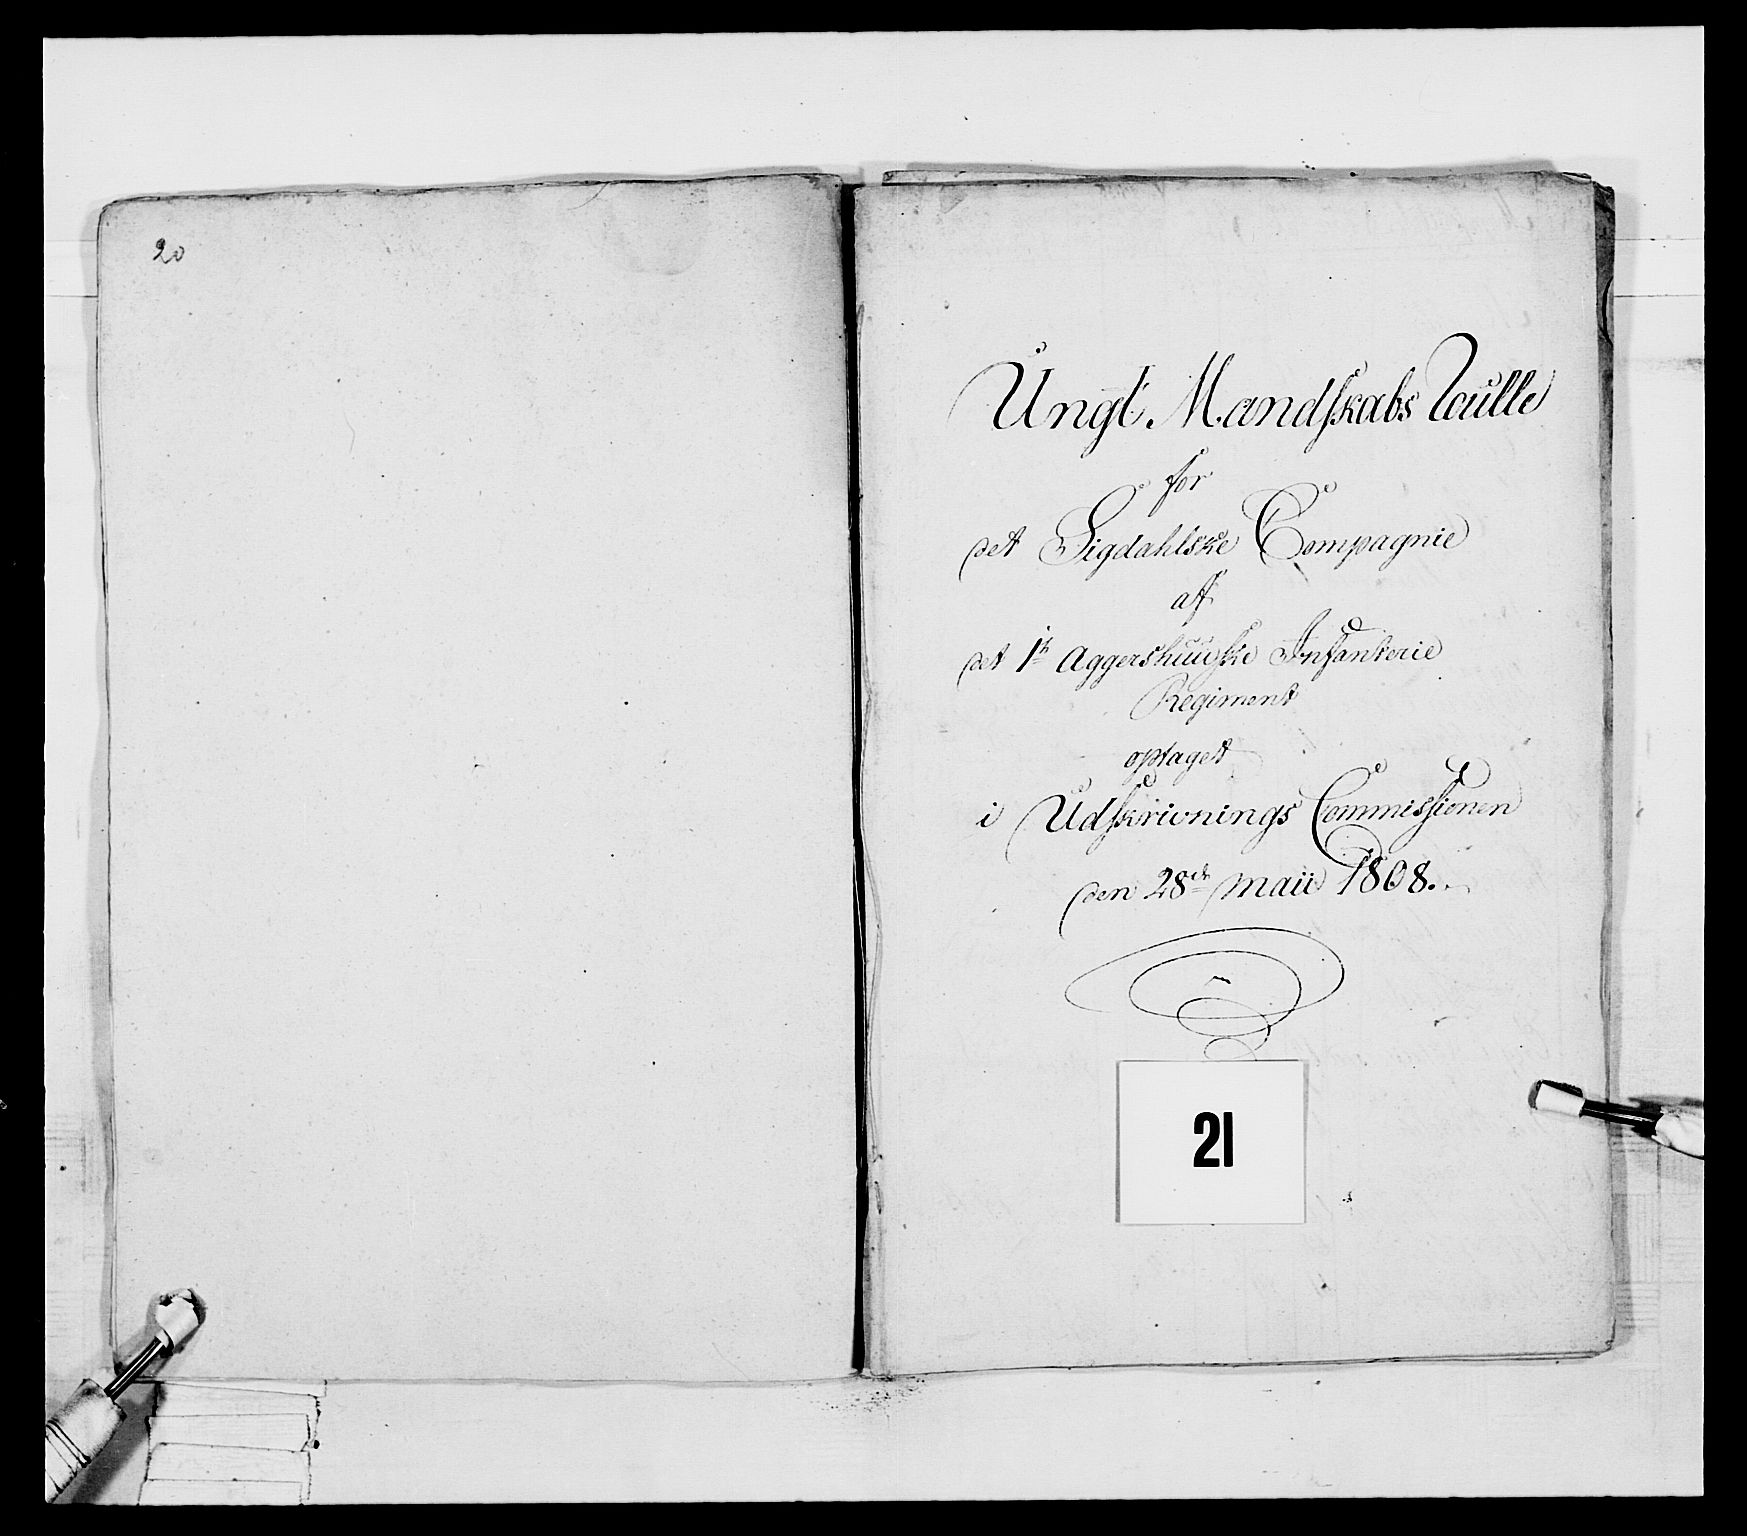 20
Ungt Mandskabs Roulle
for
det Sigdahlske Compagnie
af
det 1te Aggershuuske Infanterie
Regiment
optaget
i Udskrivnings Commissionen
den 28de Maii 1808.
21